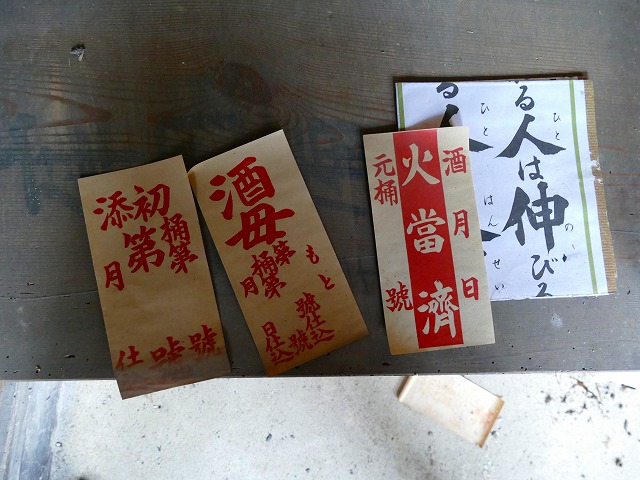 初添
桶第 號
第 號
月 仕
酒母
もと
第 號仕込
桶第 號
月 日仕込
酒 月 日
火當濟
元桶 號
ひと の
る人は伸びる
ひと はんせい
る人